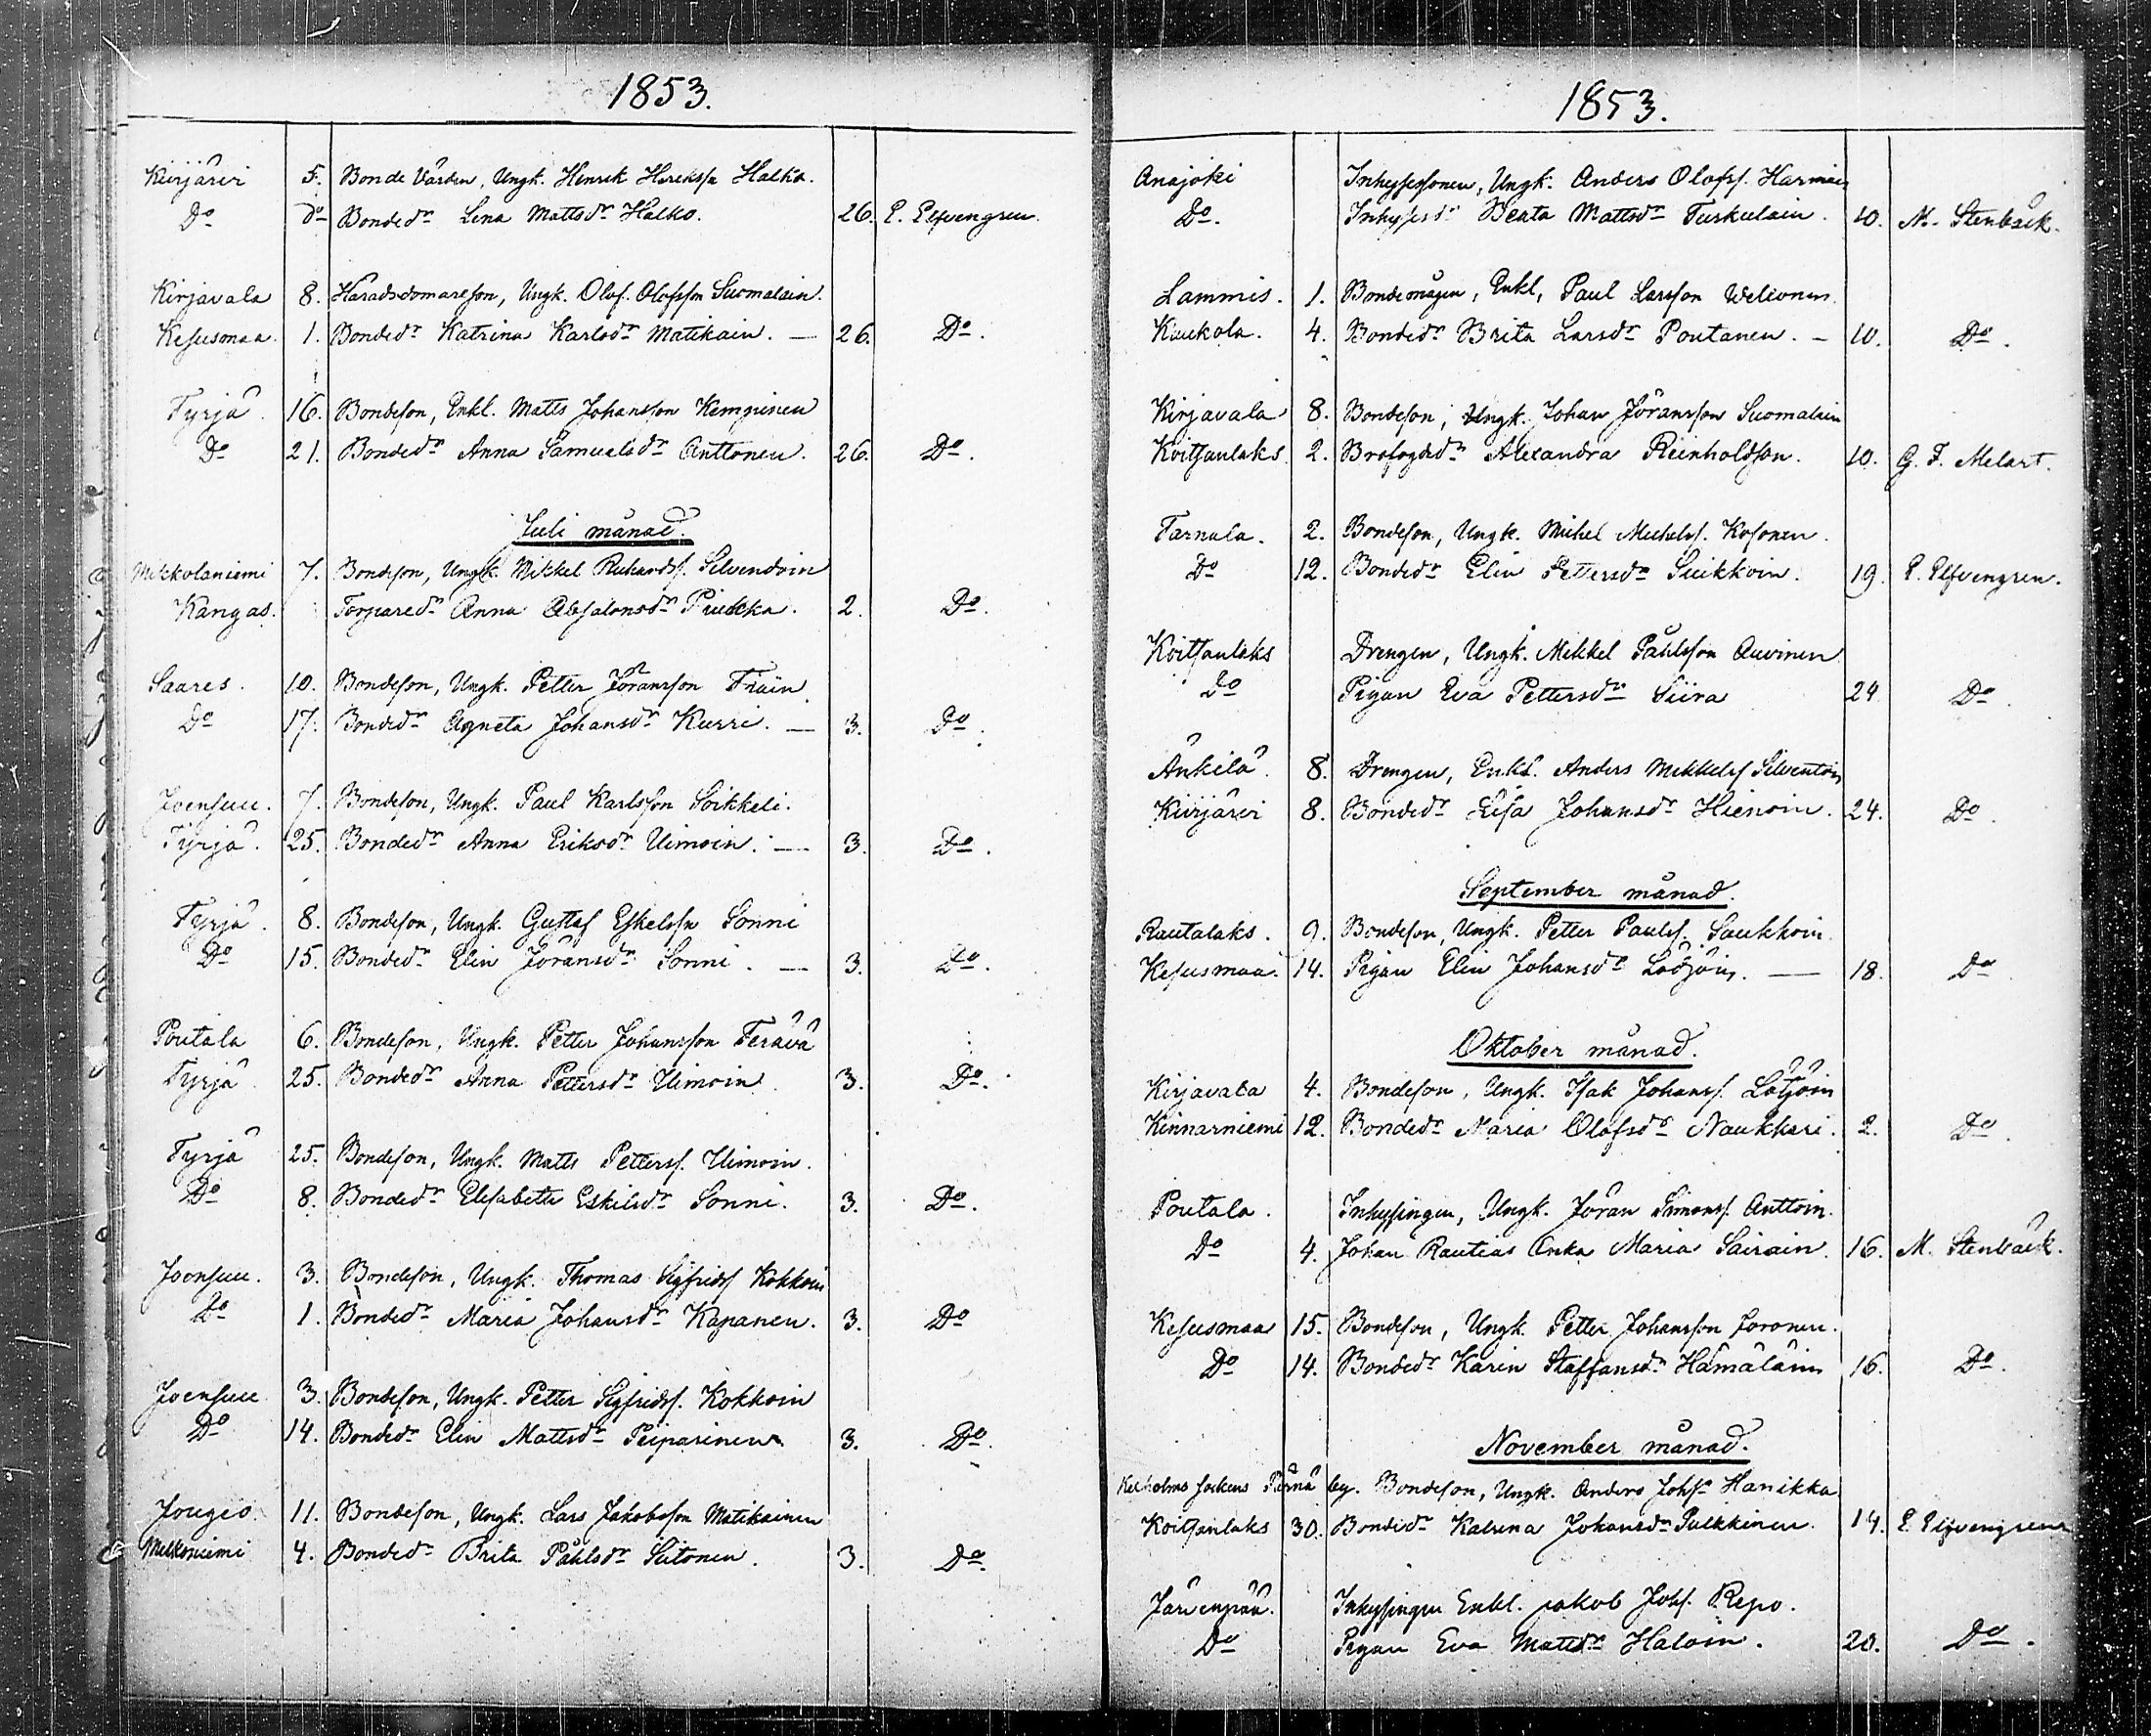 1853.
Kirjäveri 5. Bonde Värden, Ungk. Henrik Henrikssn Halko.
Do do Bondedr Lena Mattsdr Halko. 26. E. Elfvengren
Kirjavala 8. Häradsdomareson, Ungk. Olof Olofsson Suomalain.
Kesusmaa. 1. Bondedr Katrina Karlsdr Matikain. — 26. Do.
Tyrjä. 16. Bondeson, Enkl. Matts Johansson Kempinen
Do 21. Bondedr Anna Samuelsdr Anttonen. 26. Do.
Juli månad.
Mikkolaniemi 7. Bondeson, Ungk. Mikkel Silvendoin
Kangas. Torparedr Anna Absalonsdr 2. Do.
Saares. 10. Bondeson, Ungk. Petter Jöransson
Do 17. Bondedr Agneta Johansdr Kurri. — 3. Do.
Joensuu. 7. Bondeson, Ungk. Paul Karlsson Soikkeli.
Tyrjä. 25. Bondedr Anna Eriksdr Uimoin. — 3. Do.
Tyrjä. 8. Bondeson, Ungk. Gustaf Eskelssn Sonni
Do 15. Bondedr Elin Jöransdr Sonni. — 3. Do.
Poutala 6. Bondeson, Ungk. Petter Johansson Terävä
Tyrjä 25. Bondedr Anna Pettersdr Uimoin. 3. Do.
Tyrjä 25. Bondeson, Ungk. Matts Petterss. Uimoin.
Do 8. Bondedr Elisabeth Eskilsdr Sonni. 3. Do.
Joensuu. 3. Bondeson, Ungk. Thomas Sigfridss Kokkoin
Do 1. Bondedr Maria Johansdr Kapanen. 3. Do
Joensuu 3. Bondeson, Ungk. Petter Sigfridss. Kokkoin
Do 14. Bondedr Elin Mattsdr Peiparinen. 3. Do.
Jougio. 11. Bondeson, Ungk. Lars Jakobsson Matikainen
4. Bondedr Brita Påhlsdr Sutonen. 3. Do.
1853.
Anajoki Inhysessonen, Ungk. Anders Olofss.
Do. Inhysesdr Beata Mattsdr Turkulain. 10. M. Stenbäck.
Lammis. 1. Bondemågen, Enkl, Paul Larsson
Kaukola. 4. Bondedr Brita Larsdr Poutanen. — 10. Do.
Kirjavala 8. Bondeson, Ungk. Johan Jöransson Suomalain
Koitsanlaks 2. Brofogdedr Alexandra Reinholdson. 10. G. F. Melart.
Tarnala. 2. Bondeson, Ungk. Michel Michelss. Kosonen.
Do 12. Bondedr Elin Pettersdr Suikkoin. 19. E. Elfvengren.
Koitsanlaks Drengen, Ungk. Mikkel Påhlsson Auvinen
Do Pigan Eva Pettersdr Siira 24 Do.
Änkilä. 8. Drengen, Enkl. Anders Mikkelss Silventoin
Kirjäveri 8. Bondedr Lisa Johansdr Hienoin. 24. Do.
September månad.
Rautalaks. 9. Bondeson, Ungk. Petter Paulss. Saukkoin.
Kesusmaa. 14. Pigan Elin Johansdr — 18. Do
Oktober månad.
Kirjavala 4. Bondeson, Ungk. Isak Johanss. Lötjöin
Kinnarniemi 12. Bondedr Maria Olofsdr Naukkari. 2. Do.
Poutala. Inhysingen, Ungk. Jöran Simonss. Anttoin.
Do 4. Johan Rautias Enka Maria Sairain. 16. M. Stenbäck.
Kesusmaa 15. Bondeson, Ungk. Petter Johansson Joronen.
Do 14. Bondedr Karin Staffansdr Hämäläin 16. Do.
November månad.
Kexholms Sockens Pärnä by. Bondeson, Ungk. Anders Johssn Hanikka
Koitsanlaks 30. Bondedr Katrina Johansdr Pulkkinen. 14. E Elfvengren
Järvenpää. Inhysingen Enkl. Jakob Johs. Repo.
Do Pigan Eva Mattsdr Haloin. 20. Do.